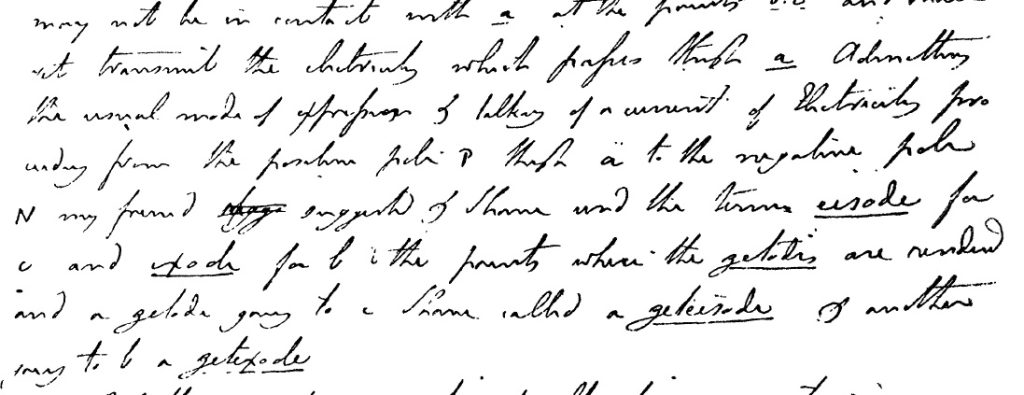 may not be in contact with a at the points b.c and
yet transmit the electricity which passes though a Admitting
the usual mode of expression & talking of a current of Electricity pro
ceeding from the positive pole P though a to the negative pole
N my friend suggested & I have used the terms eisode for
c and exode for b i.e the points where the zetodes are rendered
and a zetode going to c I have called a zeteisode & another
going to b a zetexode